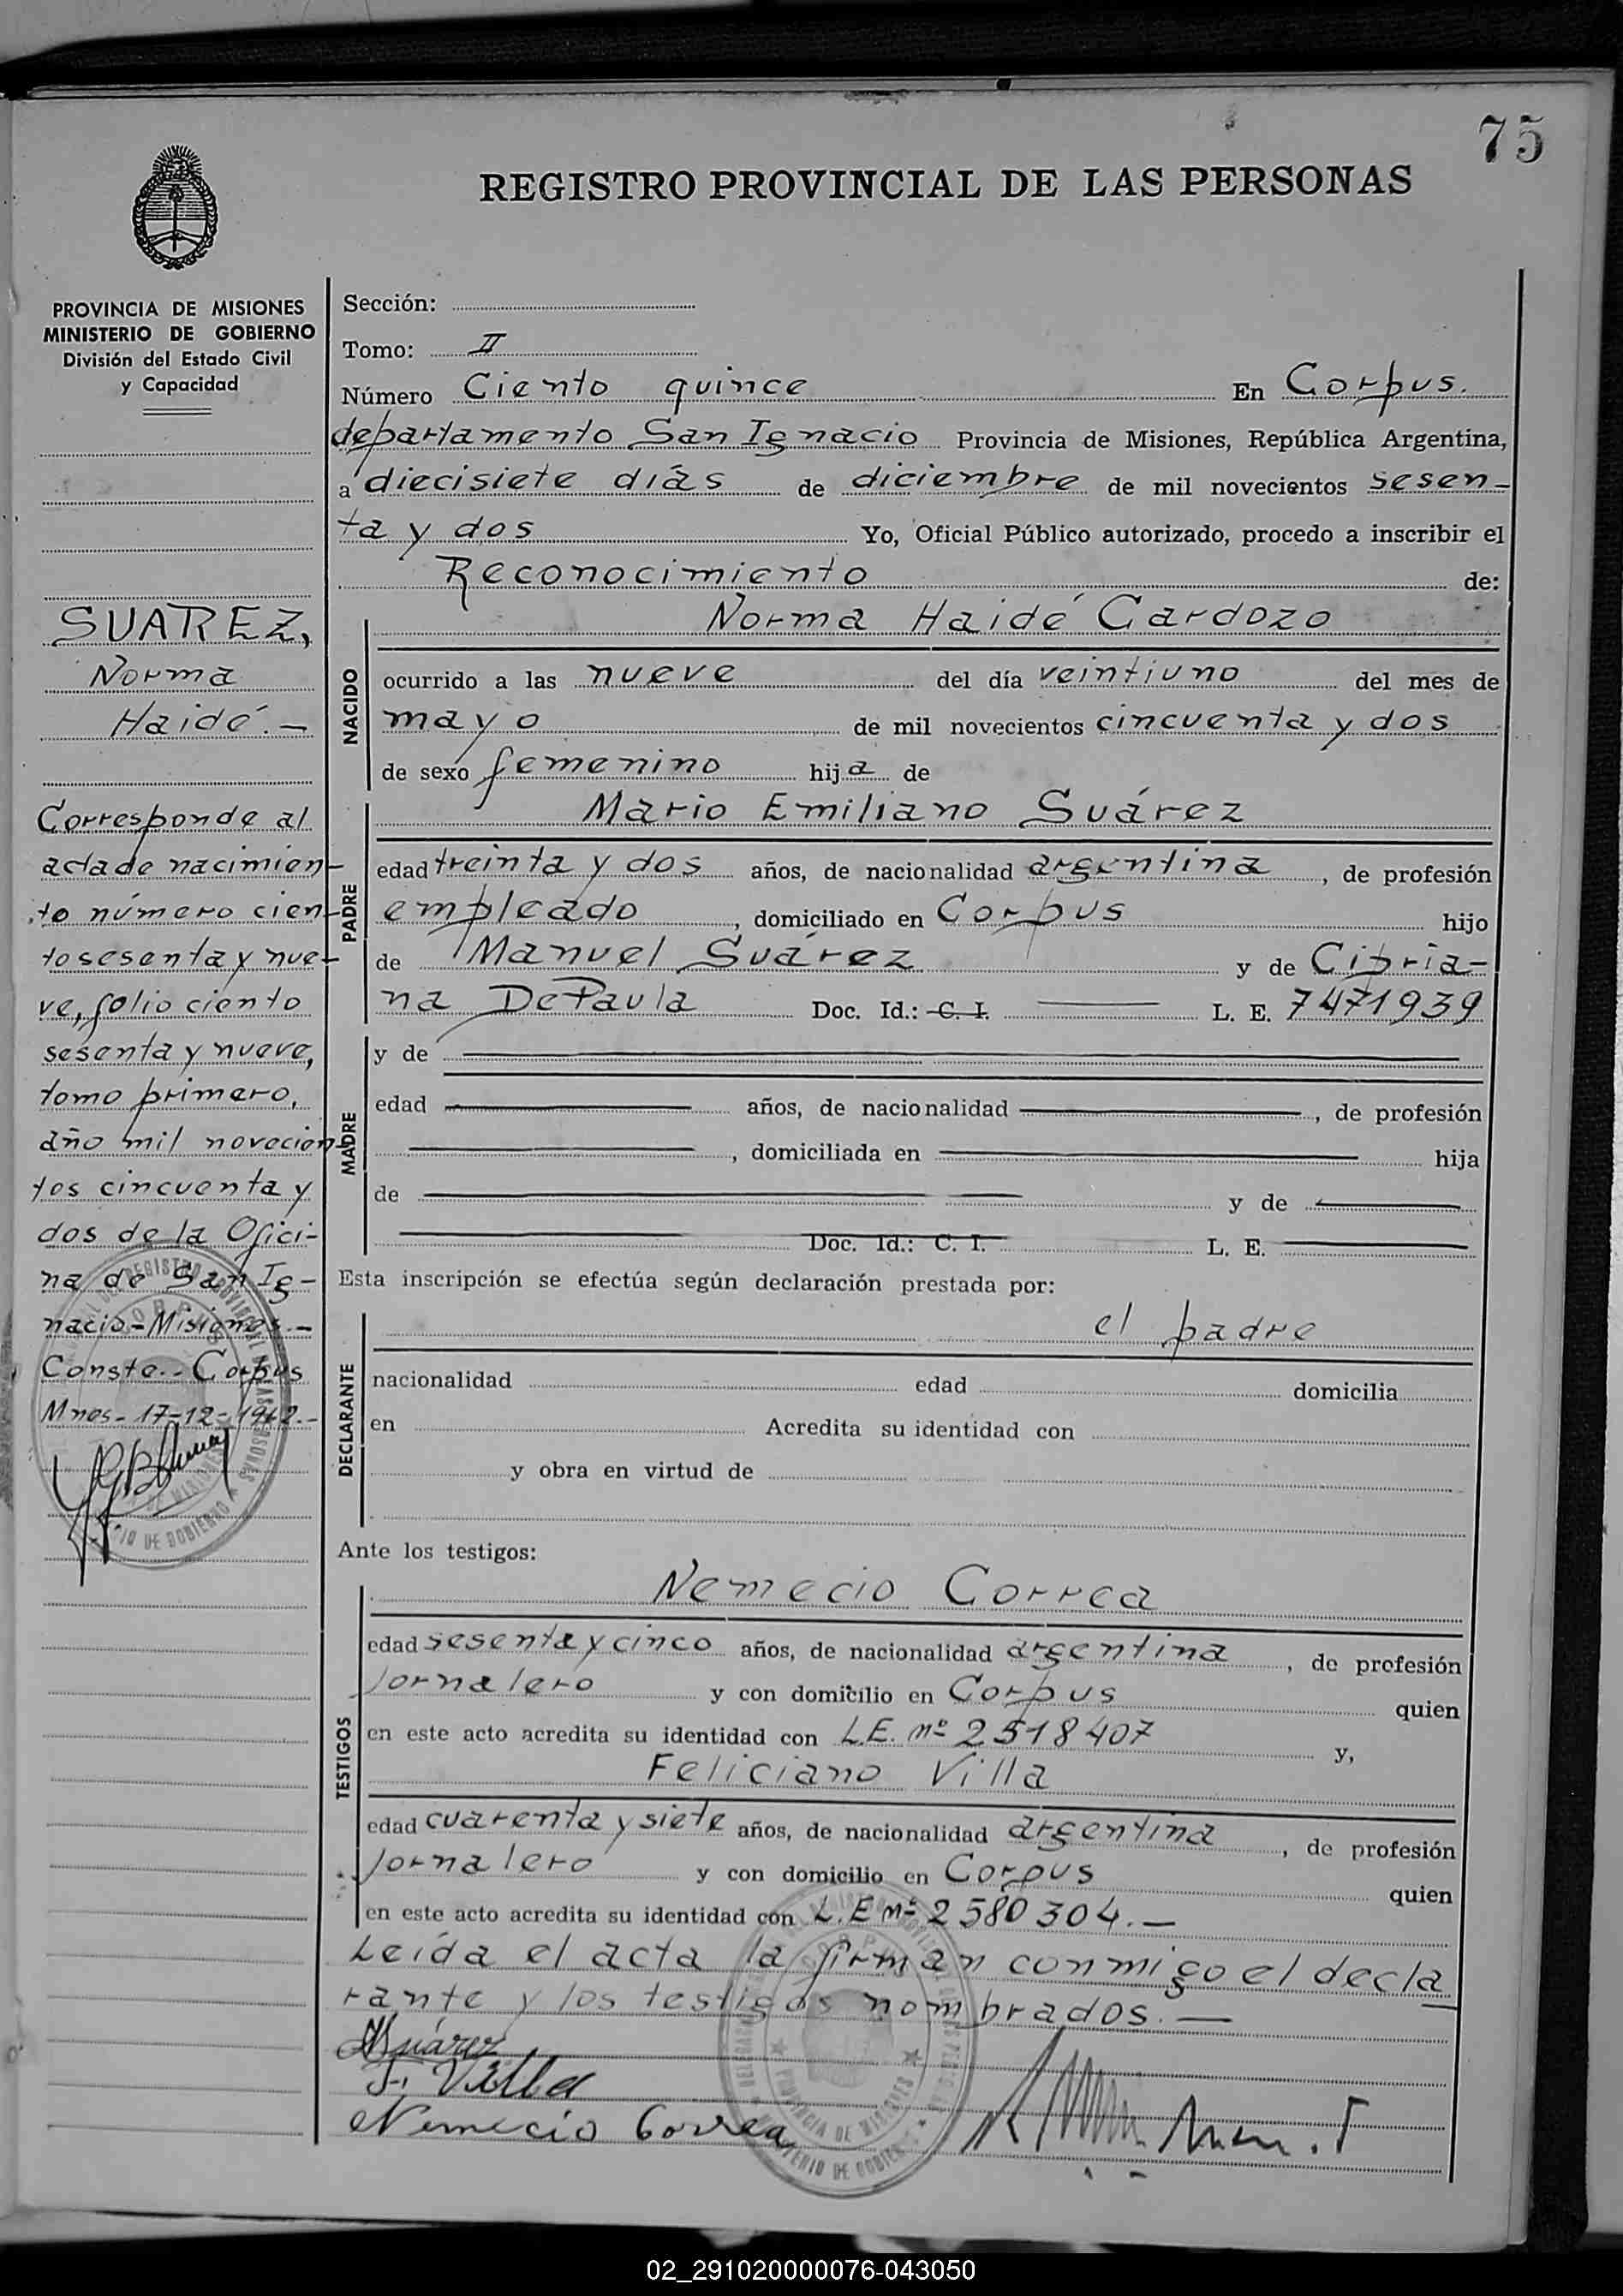 75
REGISTRO PROVINCIAL DE LAS PERSONAS
PROVINCIA DE MISIONES
MINISTERIO DE GOBIERNO
División del Estado Civil
y Capacidad
SUAREZ,
Norma
Haidé.-
Corresponde al
acta de nacimien-
to número cien-
to sesenta y nue-
ve, folio ciento
sesenta y nueve,
tomo primero,
año mil novecien-
tos cincuenta y
dos de la Ofici-
na de San Ig-
nacio - Misiones.-
Conste.- Corpus
Mnes- 17-12-1962.-
Sección:
Tomo: II
Número Ciento quince En Corpus.
departamento San Ignacio Provincia de Misiones, República Argentina,
a diecisiete días de diciembre de mil novecientos sesen-
ta y dos Yo, Oficial Público autorizado, procedo a inscribir el
Reconocimiento de:
Norma Haidé Cardozo
NACIDO
ocurrido a las nueve del día veintiuno del mes de
mayo de mil novecientos cincuenta y dos
de sexo femenino hija de
Mario Emiliano Suárez
PADRE
edad treinta y dos años, de nacionalidad argentina, de profesión
empleado, domiciliado en Corpus hijo
de Manuel Suárez y de Cipria-
na DePaula Doc. Id.: C. I. L. E. 7471939
MADRE
y de
edad años, de nacionalidad , de profesión
, domiciliada en hija
de y de
Doc. Id.: C. I. L. E.
Esta inscripción se efectúa según declaración prestada por:
DECLARANTE
el padre
nacionalidad edad domicilia
en Acredita su identidad con
y obra en virtud de
Ante los testigos:
TESTIGOS
Nemecio Correa
edad sesenta y cinco años, de nacionalidad argentina, de profesión
Jornalero y con domicilio en Corpus quien
en este acto acredita su identidad con L.E. nº 2518407 y,
Feliciano Villa
edad cuarenta y siete años, de nacionalidad argentina, de profesión
Jornalero y con domicilio en Corpus quien
en este acto acredita su identidad con L.E nº 2580304.-
Leída el acta la firman conmigo el decla
rante y los testigos nombrados.-
MSuárez
F. Villa
Nemecio Correa
02_291020000076-043050